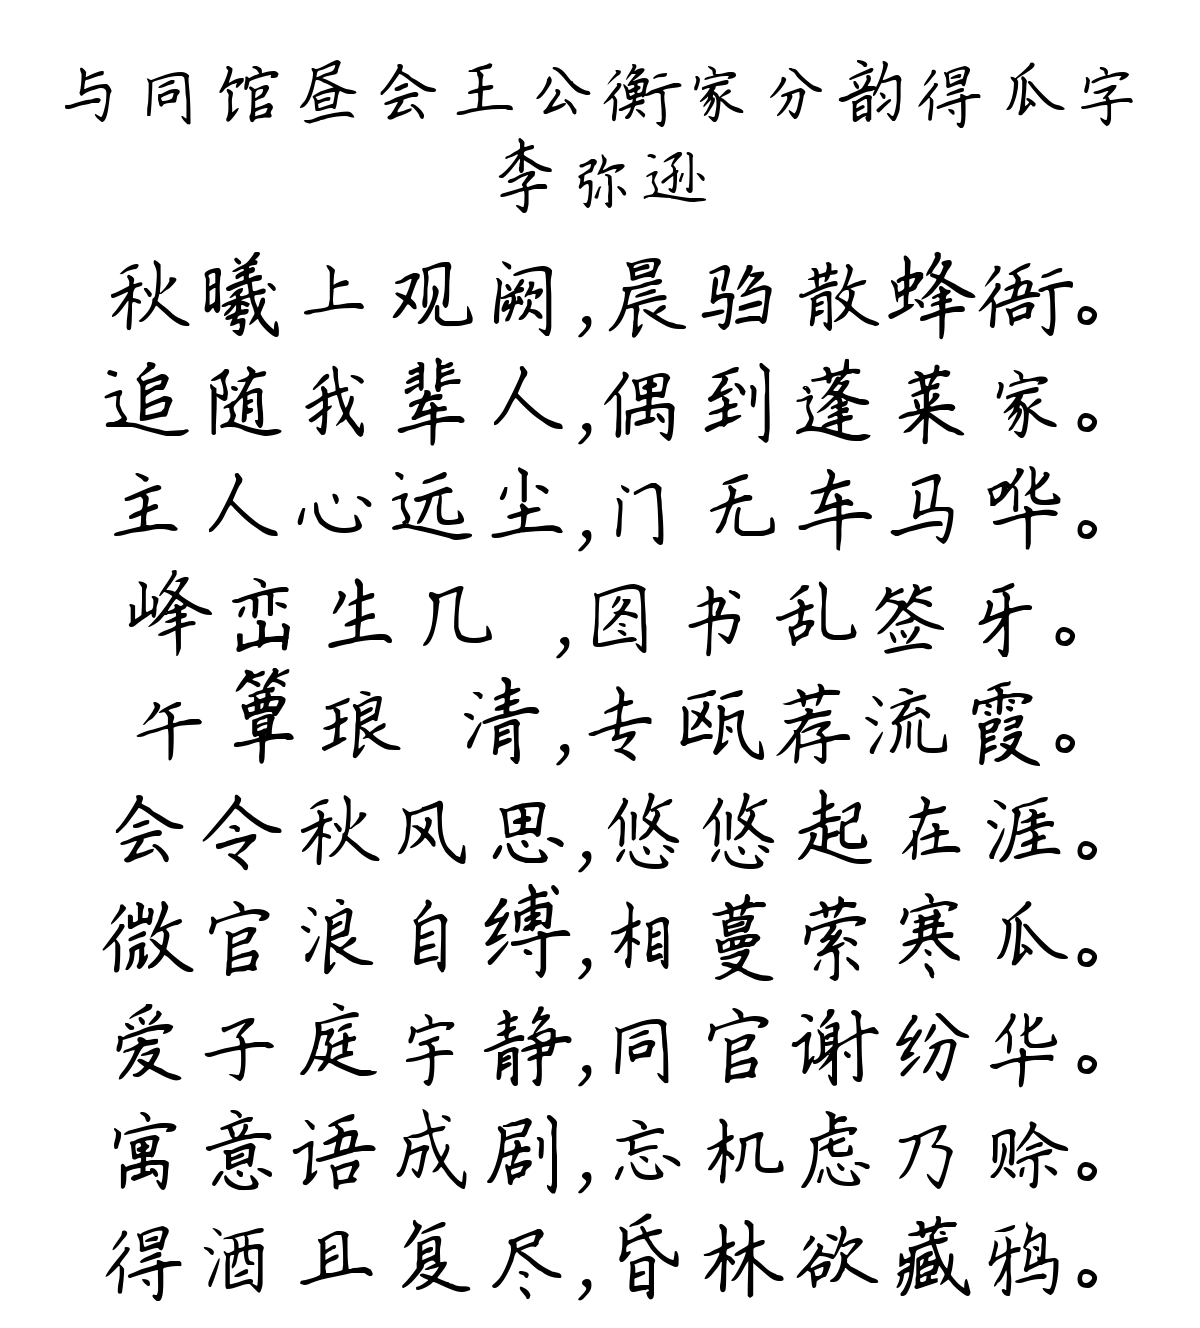 与同馆昼会王公衡家分韵得瓜字
李弥逊
秋曦上观阙,晨驺散蜂衙。
追随我辈人,偶到蓬莱家。
主人心远尘,门无车马哗。
峰峦生几 ,图书乱签牙。
午簟琅 清,专瓯荐流霞。
会令秋风思,悠悠起在涯。
微官浪自缚,相蔓萦寒瓜。
爱子庭宇静,同官谢纷华。
寓意语成剧,忘机虑乃赊。
得酒且复尽,昏林欲藏鸦。